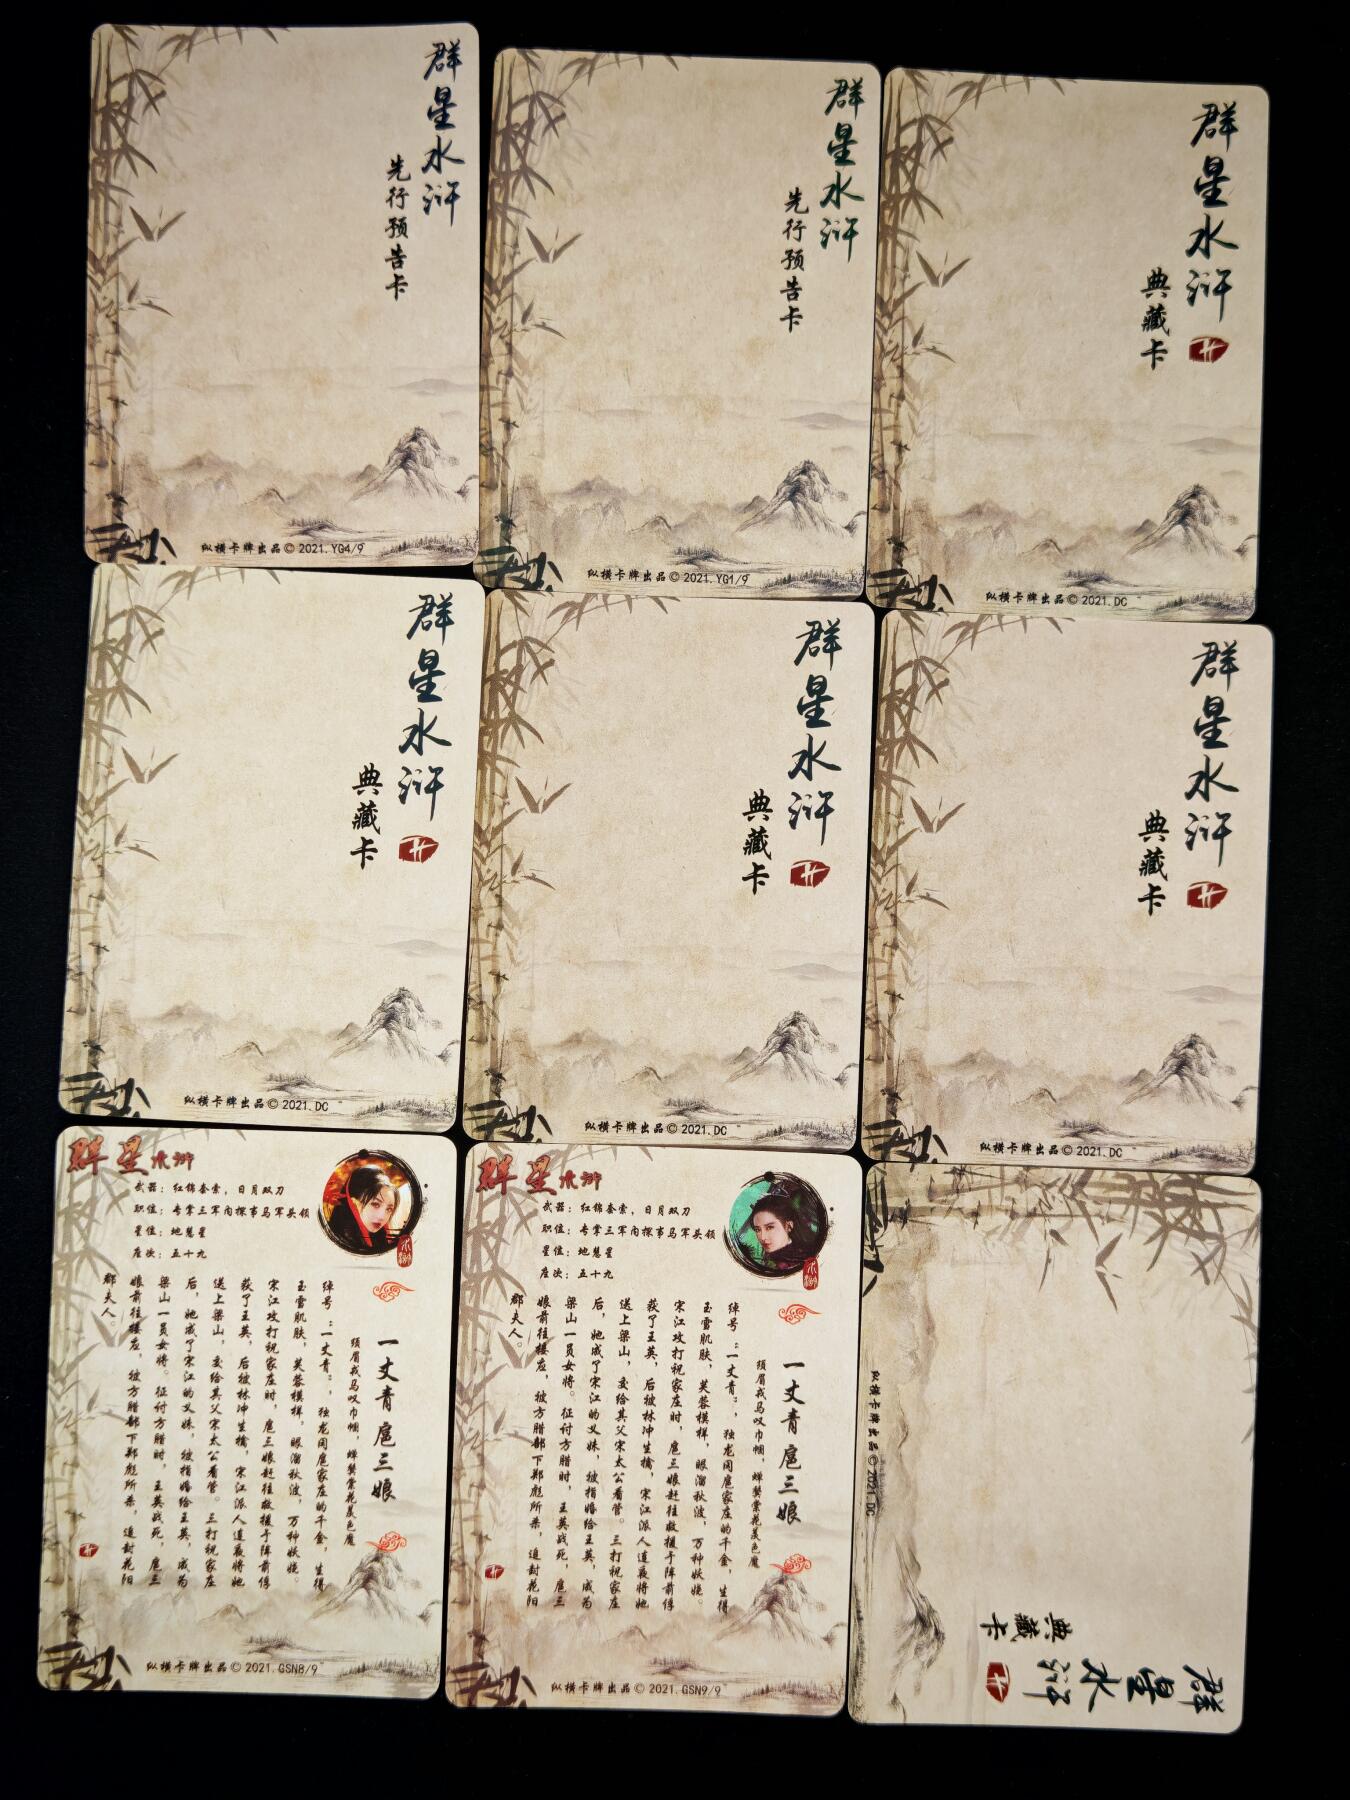 群星水浒
先行预告卡
纵横卡牌出品©2021.YG4/9
群星水浒
先行预告卡
纵横卡牌出品©2021.YG1/9
群星水浒
典藏卡
纵横卡牌出品©2021.DC
群星水浒
典藏卡
纵横卡牌出品©2021.DC
群星水浒
典藏卡
纵横卡牌出品©2021.DC
群星水浒
典藏卡
纵横卡牌出品©2021.DC
群星水浒
武器：红锦套索，日月双刀
职位：专掌三军内探事马军头领
星位：地慧星
座次：五十九
一丈青扈三娘
须眉戎马叹巾帼，蝉鬓棠花羡色魔
绰号：“一丈青”，独龙岗扈家庄的千金，生得
玉雪肌肤，芙蓉模样，眼溜秋波，万种妖娆。
宋江攻打祝家庄时，扈三娘赶往救援于阵前俘
获了王英，后被林冲生擒，宋江派人连夜将她
送上梁山，交给其父宋太公看管。三打祝家庄
后，她成了宋江的义妹，被指婚给王英，成为
梁山一员女将。征讨方腊时，王英战死，扈三
娘前往接应，被方腊部下郑彪所杀，追封花阳
郡夫人。
纵横卡牌出品©2021.GSN8/9
群星水浒
武器：红锦套索，日月双刀
职位：专掌三军内探事马军头领
星位：地慧星
座次：五十九
一丈青扈三娘
须眉戎马叹巾帼，蝉鬓棠花羡色魔
绰号：“一丈青”，独龙岗扈家庄的千金，生得
玉雪肌肤，芙蓉模样，眼溜秋波，万种妖娆。
宋江攻打祝家庄时，扈三娘赶往救援于阵前俘
获了王英，后被林冲生擒，宋江派人连夜将她
送上梁山，交给其父宋太公看管。三打祝家庄
后，她成了宋江的义妹，被指婚给王英，成为
梁山一员女将。征讨方腊时，王英战死，扈三
娘前往接应，被方腊部下郑彪所杀，追封花阳
郡夫人。
纵横卡牌出品©2021.GSN9/9
群星水浒
典藏卡
纵横卡牌出品©2021.DC